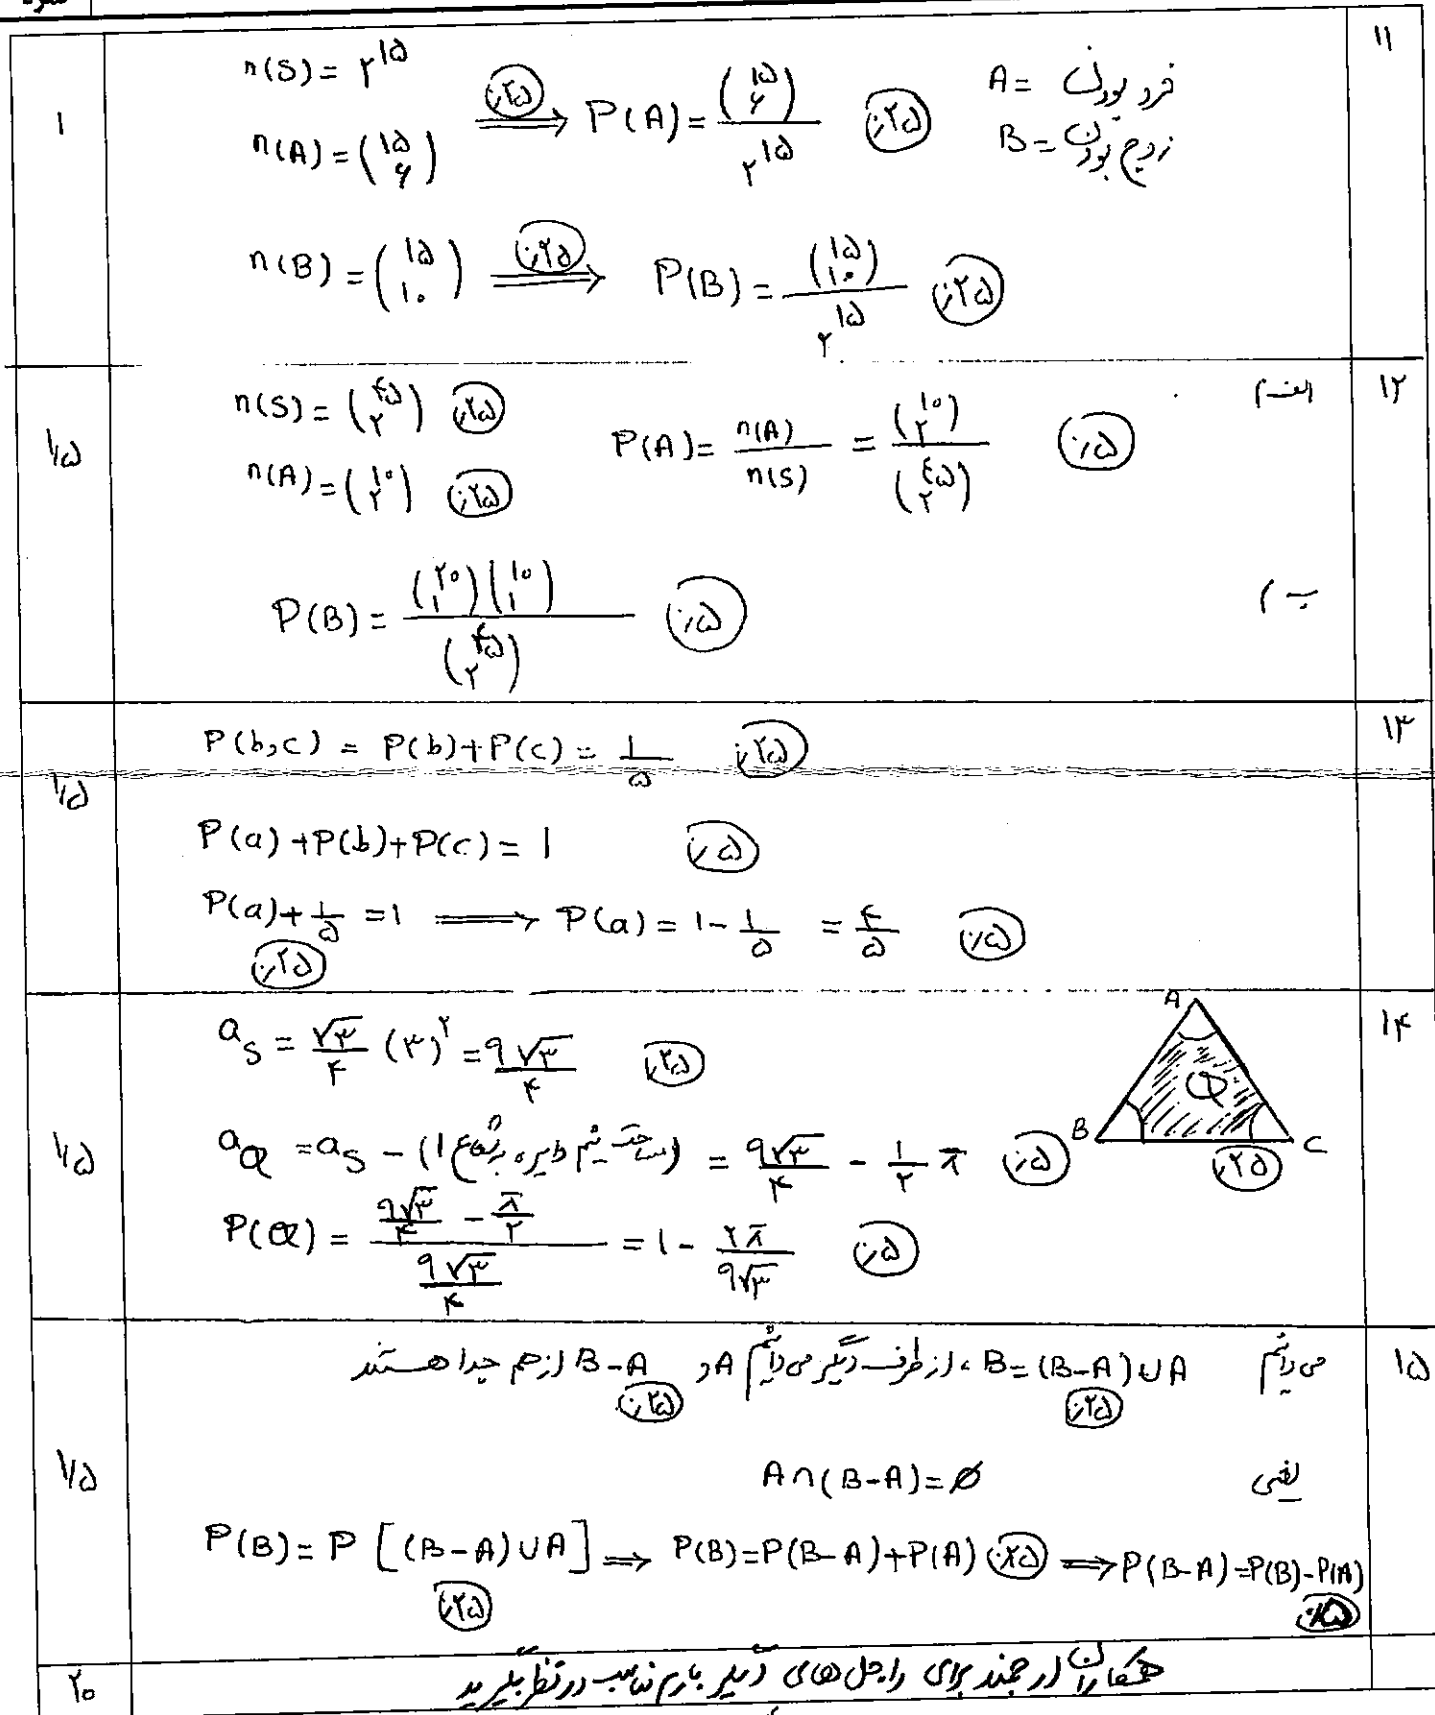 ۱۱
n(S) = ۲^۱۵
n(A) = (۱۵ ۶) ⟹ ۰/۲۵ P(A) = (۱۵ ۶) / ۲^۱۵ ۰/۲۵
A = فرد بودن
B = زوج بودن
۱
n(B) = (۱۵ ۱۰) ⟹ ۰/۲۵ P(B) = (۱۵ ۱۰) / ۲^۱۵ ۰/۲۵
۱۲
الف)
n(S) = (۴۵ ۲) ۰/۲۵
n(A) = (۱۰ ۲) ۰/۲۵ P(A) = n(A) / n(S) = (۱۰ ۲) / (۴۵ ۲) ۰/۵
۱/۵
ب) P(B) = (۲۰ ۱)(۱۰ ۱) / (۴۵ ۲) ۰/۵
۱۳
P(b,c) = P(b)+P(c) = ۱/۵ ۰/۲۵
۱/۵
P(a)+P(b)+P(c) = ۱ ۰/۵
P(a)+۱/۵ = ۱ ⟹ P(a) = ۱-۱/۵ = ۴/۵ ۰/۵
۰/۲۵
۱۴
a_S = √۳/۴ (۳)^۲ = ۹√۳/۴ ۰/۲۵
A
Q
B
C
۰/۲۵
a_Q = a_S - (مساحت نیم دایره به شعاع ۱) = ۹√۳/۴ - ۱/۲ π ۰/۵
۱/۵
P(Q) = (۹√۳/۴ - π/۲) / (۹√۳/۴) = ۱ - ۲π/۹√۳ ۰/۵
۱۵
می دانیم B = (B-A)∪A ، از طرف دیگر می دانیم A و B-A از هم جدا هستند
۰/۲۵ ۰/۲۵
یعنی A∩(B-A)=∅
۱/۵
P(B) = P[(B-A)∪A] ⟹ P(B)=P(B-A)+P(A) ۰/۲۵ ⟹ P(B-A)=P(B)-P(A)
۰/۲۵
همکاران ارجمند برای راه حل های دیگر بارم مناسب در نظر بگیرید
۲۰